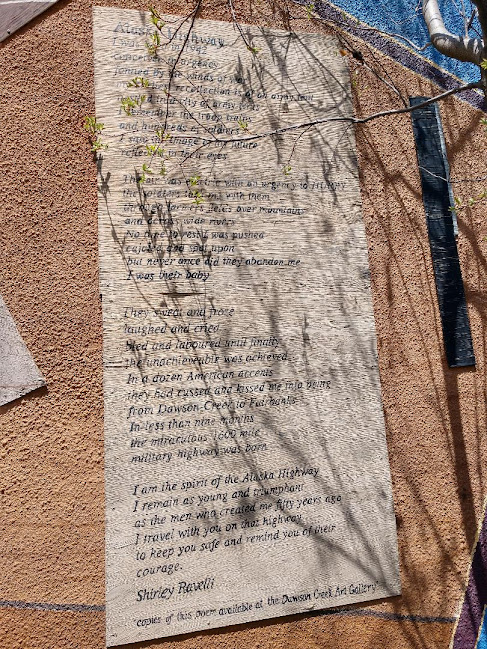 Alaska Highway
I was born in 1942
conceived in urgency
formed by the winds of war
recollection is of an
I remember the troop trains
and hundreds of soldiers
I saw the image of the future
reflected in their eyes
The air was electric with an urgency to
the soldiers took me with them
through farmers fields over mountains
and across wide rivers
No time to rest I was pushed
cajoled and spat upon
but never once did they abandon me
I was their baby
They sweat and froze
laughed and cried
bled and laboured until finally
the unachievable was achieved
In a dozen American accents
they had cussed and kissed me into being
from Dawson Creek to Fairbanks
In less than nine months
the miraculous 1600 mile
military highway was born
I am the spirit of the Alaska Highway
I remain as young and triumphant
as the men who created me fifty years ago
I travel with you on that highway
to keep you safe and remind you of their
courage.
Shirley Ravelli
copies of this poem available at the Dawson Creek Art Gallery